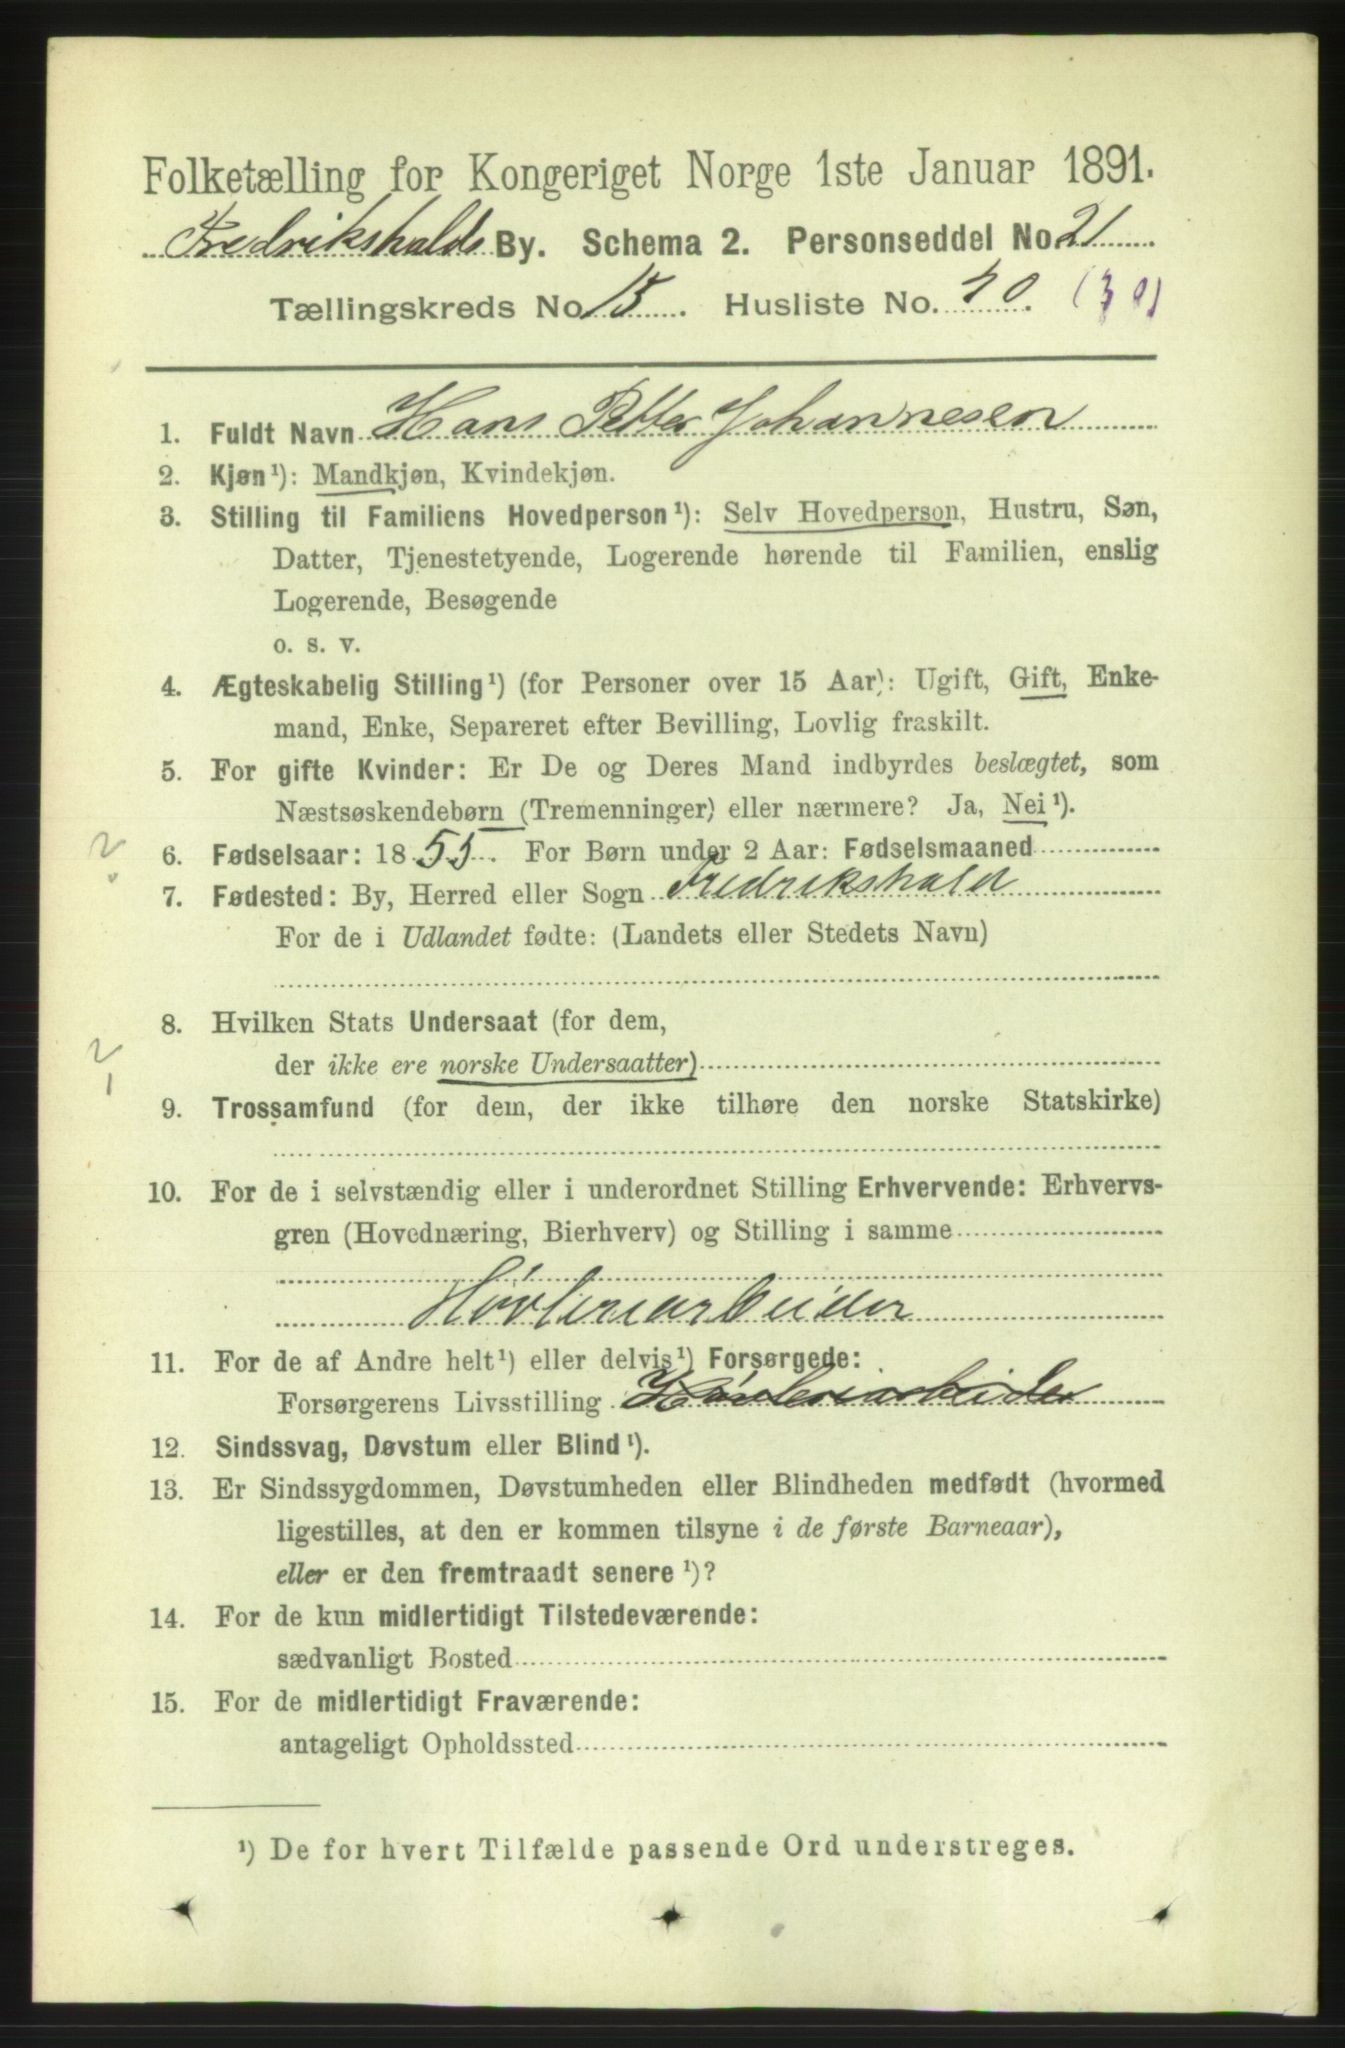 Folketælling for Kongeriget Norge 1ste Januar 1891.
Fredrikshalds By. Schema 2. Personseddel No. 21
Tællingskreds No. 15. Husliste No. 70. (30)
1. Fuldt Navn Hans Petter Johannesen
2. Kjøn¹): Mandkjøn, Kvindekjøn.
3. Stilling til Familiens Hovedperson¹): Selv Hovedperson, Hustru, Søn,
Datter, Tjenestetyende, Logerende hørende til Familien, enslig
Logerende, Besøgende
o. s. v.
4. Ægteskabelig Stilling¹) (for Personer over 15 Aar): Ugift, Gift, Enke-
mand, Enke, Separeret efter Bevilling, Lovlig fraskilt.
5. For gifte Kvinder: Er De og Deres Mand indbyrdes beslægtet, som
Næstsøskendebørn (Tremenninger) eller nærmere? Ja, Nei¹).
6. Fødselsaar: 1855. For Børn under 2 Aar: Fødselsmaaned
7. Fødested: By, Herred eller Sogn Fredrikshald
For de i Udlandet fødte: (Landets eller Stedets Navn)
8. Hvilken Stats Undersaat (for dem,
der ikke ere norske Undersaatter)
9. Trossamfund (for dem, der ikke tilhøre den norske Statskirke)
10. For de i selvstændig eller i underordnet Stilling Erhvervende: Erhvervs-
gren (Hovednæring, Bierhverv) og Stilling i samme
Høvleriarbeider
11. For de af Andre helt¹) eller delvis¹) Forsørgede:
Forsørgerens Livsstilling Høvleriarbeider
12. Sindssvag, Døvstum eller Blind¹).
13. Er Sindssygdommen, Døvstumheden eller Blindheden medfødt (hvormed
ligestilles, at den er kommen tilsyne i de første Barneaar),
eller er den fremtraadt senere¹)?
14. For de kun midlertidigt Tilstedeværende:
sædvanligt Bosted
15. For de midlertidigt Fraværende:
antageligt Opholdssted
¹) De for hvert Tilfælde passende Ord understreges.